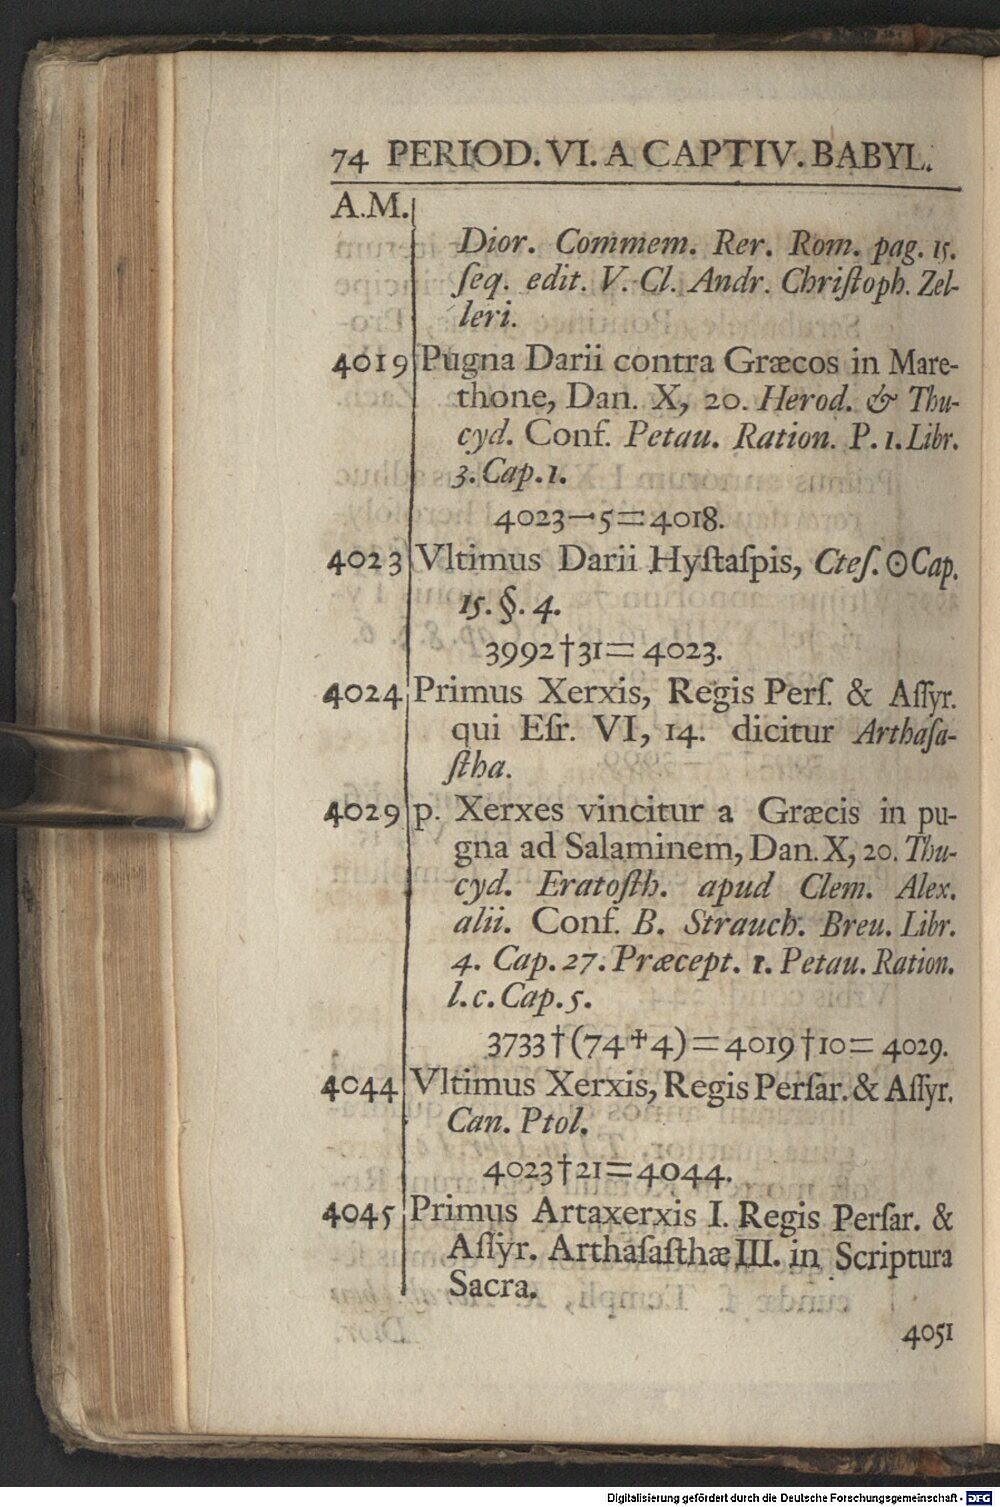 74 PERIOD. VI. A CAPTIV. BABYL.
A.M.
Dior. Commem. Rer. Rom. pag. 15.
ſeq. edit. V. Cl. Andr. Chriſtoph. Zel-
leri.
4019 Pugna Darii contra Græcos in Mare-
thone, Dan. X, 20. Herod. & Thu-
cyd. Conf. Petau. Ration. P. 1. Libr.
3. Cap. 1.
4023—5=4018.
4023 Vltimus Darii Hyſtaſpis, Cteſ. ☉ Cap.
15. §. 4.
3992†31=4023.
4024 Primus Xerxis, Regis Perſ. & Aſſyr.
qui Eſr. VI, 14. dicitur Arthaſa-
ſtha.
4029 p. Xerxes vincitur a Græcis in pu-
gna ad Salaminem, Dan. X, 20. Thu-
cyd. Eratoſth. apud Clem. Alex.
alii. Conf. B. Strauch. Breu. Libr.
4. Cap. 27. Præcept. 1. Petau. Ration.
l. c. Cap. 5.
3733†(74†4)=4019†10=4029.
4044 Vltimus Xerxis, Regis Perſar. & Aſſyr.
Can. Ptol.
4023†21=4044.
4045 Primus Artaxerxis I. Regis Perſar. &
Aſſyr. Arthaſaſthæ III. in Scriptura
Sacra.
4051
Digitalisierung gefördert durch die Deutsche Forschungsgemeinschaft - DFG